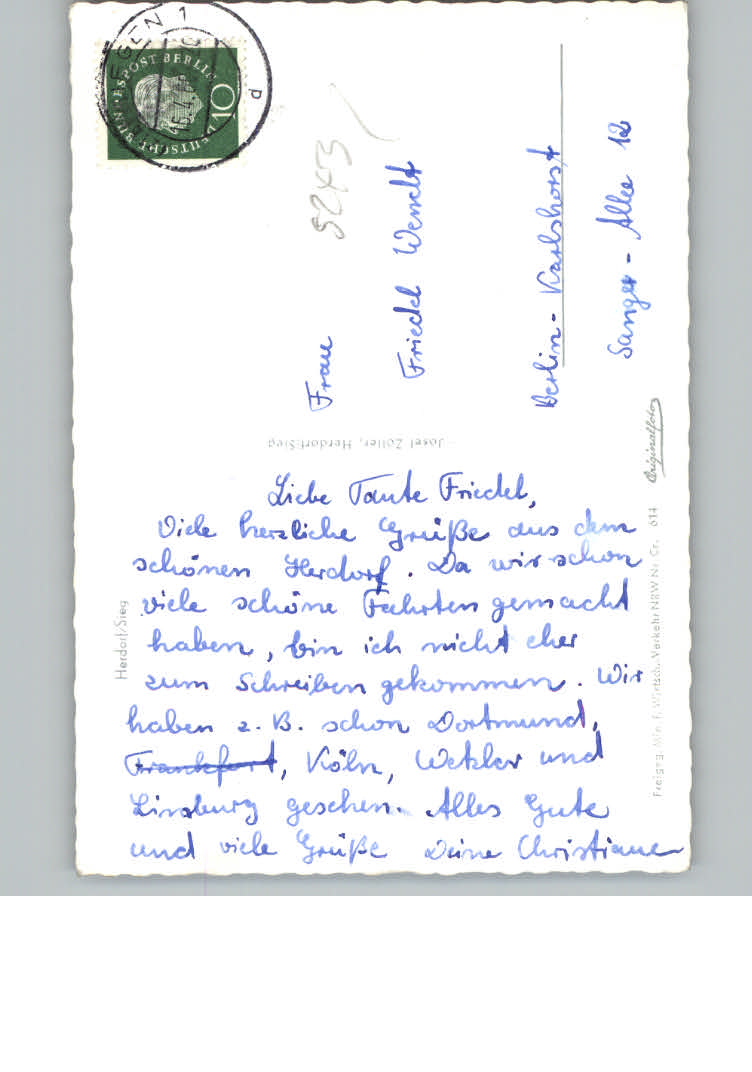 Liebe Tante Friedel,
Viele herzliche Grüße aus dem
schönen Herdorf. Da wir schon
viele schöne Fahrten gemacht
haben, bin ich nicht eher
zum Schreiben gekommen. Wir
haben z. B. schon Dortmund,
Frankfurt, Köln, Wetzlar und
Limburg gesehen. Alles Gute
und viele Grüße Deine Christiane
Frau
Friedel
Berlin-Karlshorst
Sanger-Allee 12
Herdorf/Sieg
Josef Zöller, Herdorf-Sieg
Originalfoto
Freigeg. Min. f. Wirtsch. Verkehr NRW Nr. Cr. 614
DEUTSCHE BUNDESPOST BERLIN
10
EGEN 1
d